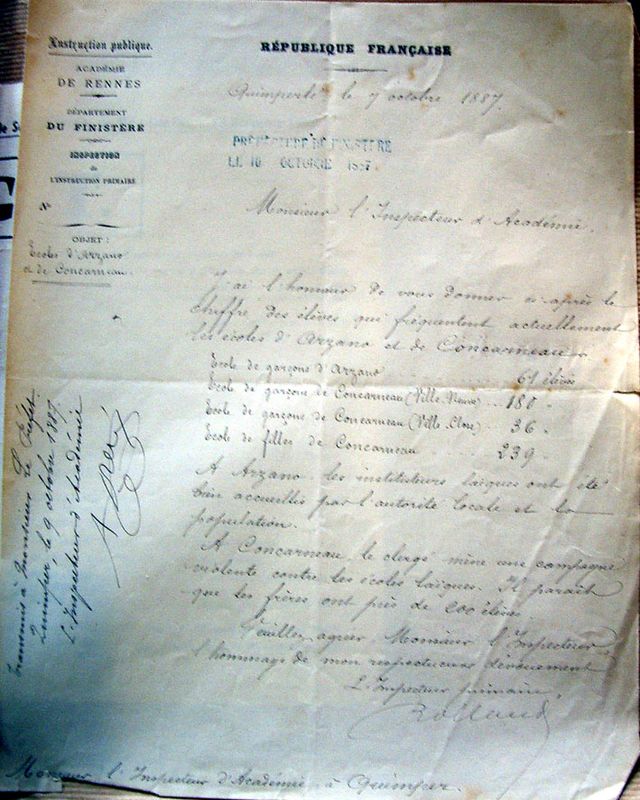 Instruction publique.
ACADÉMIE
DE RENNES
DÉPARTEMENT
DU FINISTÈRE
INSPECTION
de
L'INSTRUCTION PRIMAIRE
N°
OBJET :
Ecoles d'Arzano
et de Concarneau.
RÉPUBLIQUE FRANÇAISE
Quimperlé le 7 octobre 1887.
PRÉFECTURE DU FINISTERE
LE 10 OCTOBRE 1887
Monsieur l'Inspecteur d'Académie.
J'ai l'honneur de vous donner ci-après le
chiffre des élèves qui fréquentent actuellement
les écoles d'Arzano et de Concarneau.
Ecole de garçons d'Arzano ... 61 élèves
Ecole de garçons de Concarneau (Ville-Neuve) ... 180 -
Ecole de garçons de Concarneau (Ville Close) ... 36 -
Ecole de filles de Concarneau ... 239 -
A Arzano les instituteurs laïques ont été
bien accueillis par l'autorité locale et la
population.
A Concarneau, le clergé mène une campagne
violente contre les écoles laïques. Il paraît
que les frères ont près de élèves
Veuillez agréer Monsieur l'Inspecteur
l'hommage de mon respectueux dévouement
L'Inspecteur primaire,
Rolland
Monsieur l'Inspecteur d'Académie à Quimper.
Transmis à Monsieur le Préfet.
Quimper le 9 octobre 1887.
L'Inspecteur d'Académie